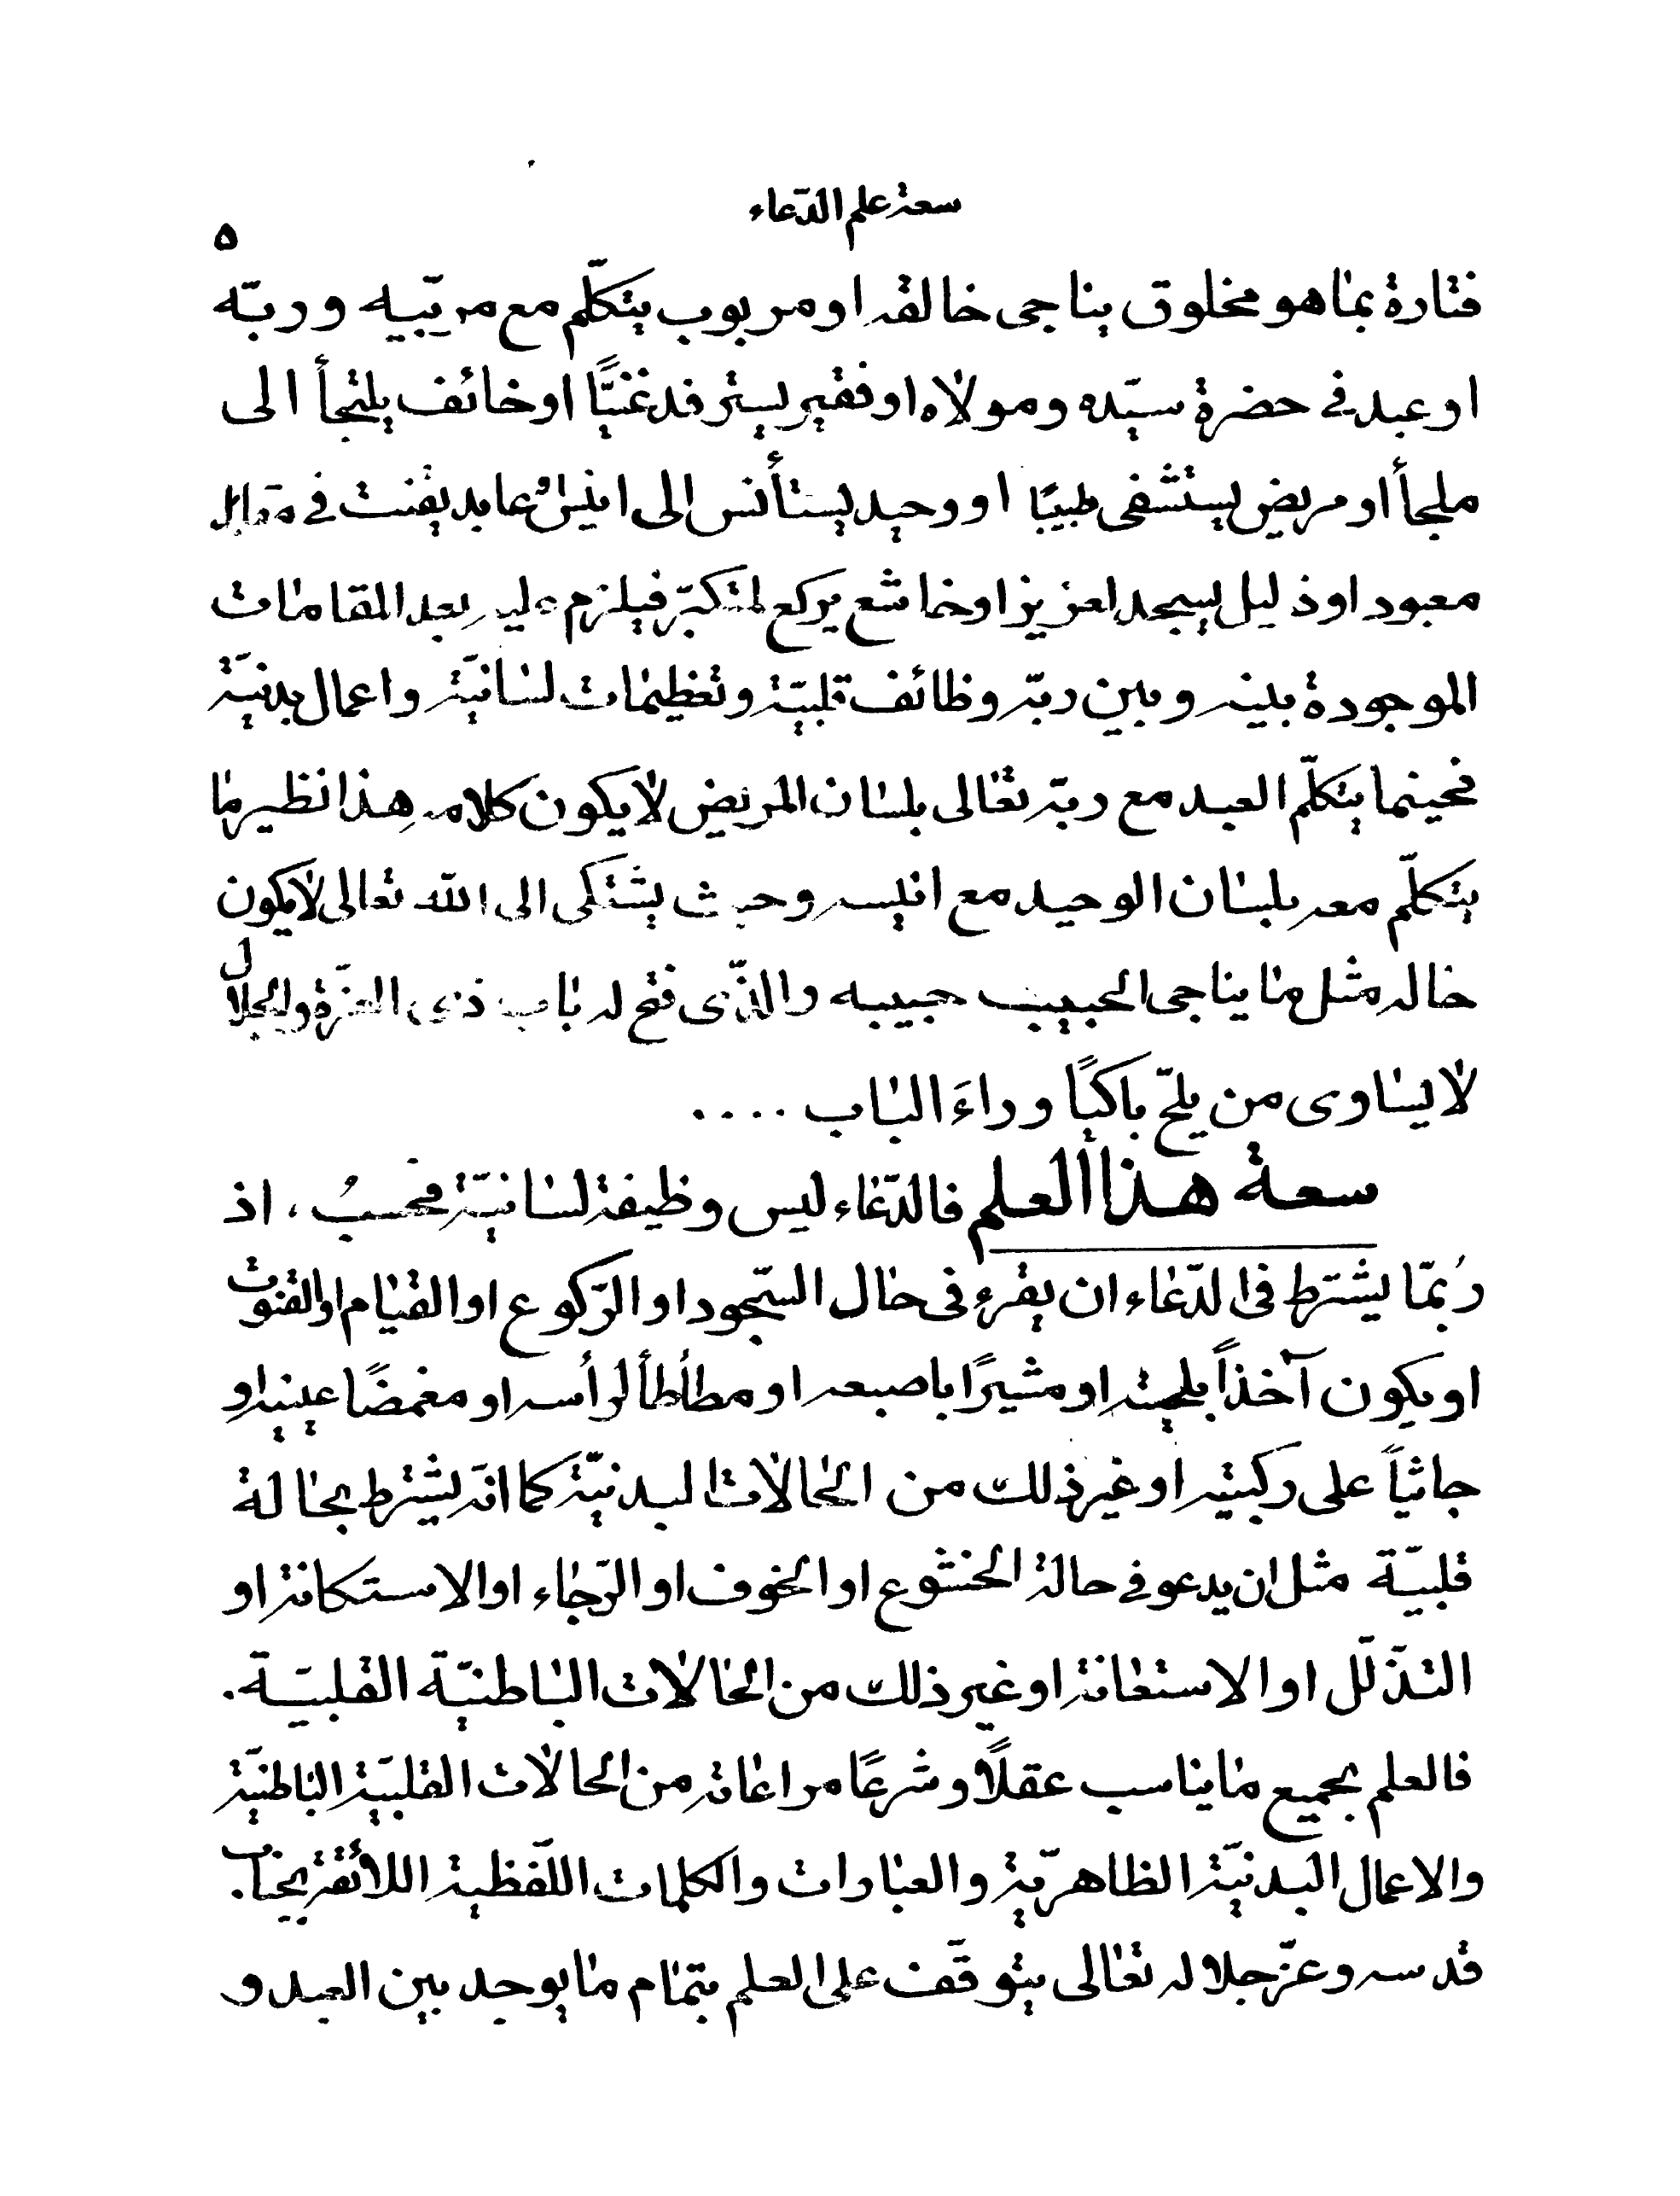 سعة علم الدّعاء
۵
فتارة بما هو مخلوق يناجى خالقه او مربوب يتكلّم مع مربّيه و ربّه
او عبد فى حضرة سيّده ومولاه او فقير يسترفد غنيًّا او خائف يلتجأ الى
ملجأ او مريض يستشفى طبيبًا او وحيد يستأنس الى انيس او عابد يقنت فى مقابل
معبود او ذليل يسجد لعزيز او خاشع يركع لمتكبّر فيلزم عليه بعد المقامات
الموجودة بينه و بين ربّه وظائف قلبيّة و تعظيمات لسانيّة و اعمال بدنيّة
فحينما يتكلّم العبد مع ربّه تعالى بلسان المريض لا يكون كلامه هذا نظير ما
يتكلّم معه بلسان الوحيد مع انيسه و حيث يشتكى الى الله تعالى لا يكون
حاله مثل ما يناجى الحبيب حبيبه والّذى فتح له باب ذى العزّة والجلال
لا يساوى من يلحّ باكيًا وراءَ الباب ....
سعة هذا العلم فالدّعاء ليس وظيفة لسانيّة فحسبُ، اذ
رُبمّا يشترط فى الدّعاء ان يقرء فى حال السّجود او الرّكوع او القيام او القنوت
او يكون آخذاً بلحيته او مشيرًا باصبعه او مطأطأ لرأسه او مغمضًا عينيه او
جاثياً على ركبتيه او غير ذلك من الحالات البدنيّة كما انّه يشترط بحالة
قلبيّة مثل ان يدعو فى حالة الخشوع او الخوف او الرّجاء او الاستكانة او
التذلّل او الاستعانة او غير ذلك من الحالات الباطنيّة القلبيّة.
فالعلم بجميع ما يناسب عقلًا و شرعًا مراعاته من الحالات القلبيّة الباطنيّة
والاعمال البدنيّة الظاهريّة و العبارات و الكلمات اللّفظية اللائقة بجناب
قدسه و عزّ جلاله تعالى يتوقّف على العلم بتمام ما يوجد بين العبد و